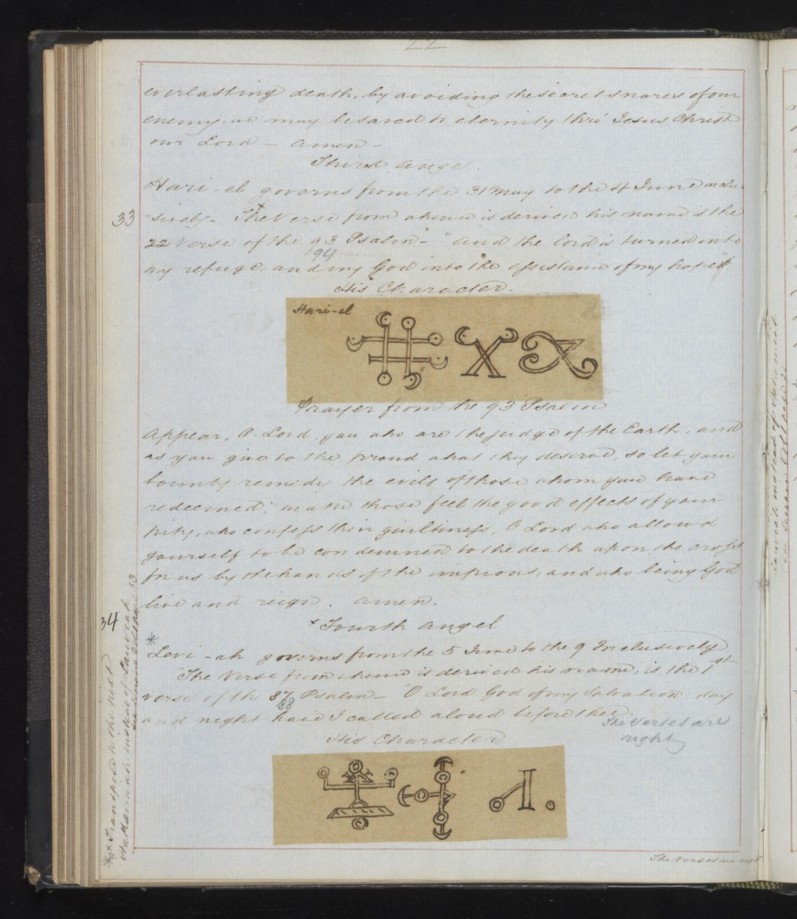 22
everlasting death, by avoiding the secret snares of our
enemy, we may be saved to eternity thro' Jesus Christ
our Lord — amen —
Third Angel.
Hari-el governs from the 31 May to the 4 June inclu-
33
sively. The Verse from whence is derived his name is the
22 Verse of the 93 Psalm — "and the lord is turned into
94
my refuge, and my God into the assistance of my hope"
His Character.
Hari-el
Prayer from the 93 Psalm
Appear, O Lord, you who are the judge of the Earth, and
as you give to the proud what they deserve, so let your
bounty remedy the evils of those whom you have
redeemed; make those feel the good effects of your
pity, who confess their guiltiness, O Lord who allowed
yourself to be condemned to the death upon the cross
for us by the hands of the impious, and who being God
live and reign. amen.
34
× Fourth Angel
* Levi-ah governs from the 5 June to the 9 Inclusively
The Verse from whence is derived his name, is the 1st
verse of the 87 Psalm — "O Lord God of my Salvation day
88
and night have I called aloud before thee
The verses are
right
His Character
Transpose to the next
Hakamiah instead of
The verses are right